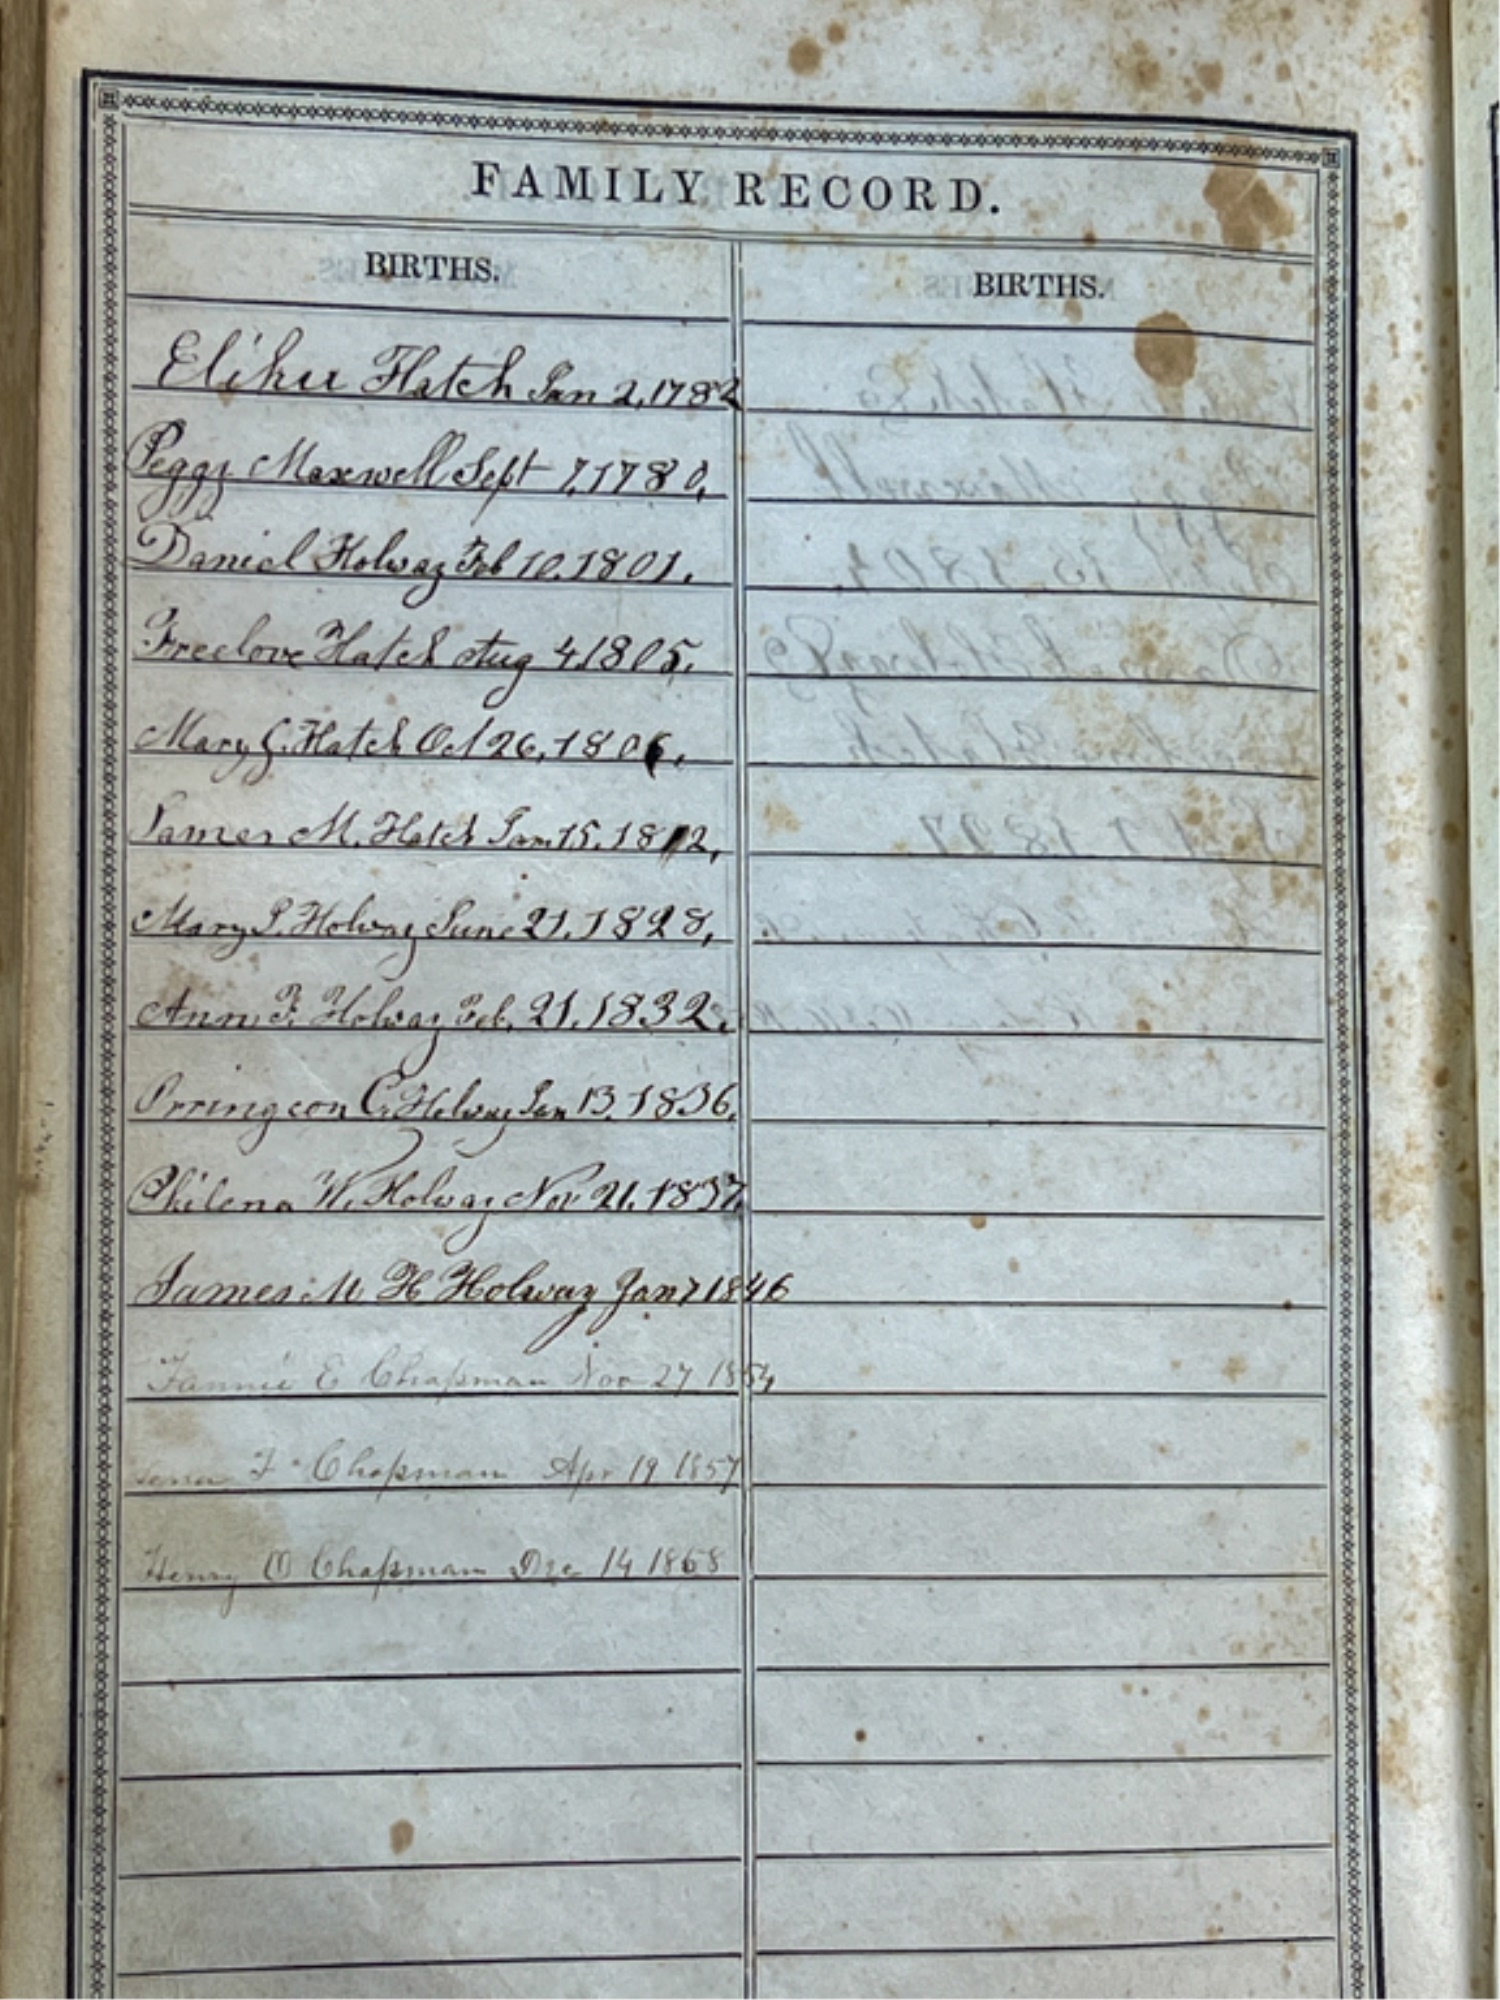 FAMILY RECORD.
BIRTHS.
BIRTHS.
Elihu Hatch Jan 2, 1782
Peggy Maxwell Sept 7, 1780,
Daniel Holway Feb 10, 1801.
Freelove Hatch Aug 4, 1805.
Mary G. Hatch Oct 26, 1806,
James M. Hatch Jan 15, 1812,
Mary P. Holway June 21, 1828,
Ann F. Holway Feb, 21, 1832.
Orringeon C. Holway Jan 13, 1836,
Philena W. Holway Nov 21, 1837,
James M H Holway Jan 7 1846
Fannie E Chapman Nov 27 1854
F Chapman Apr 19 1857
Henry O Chapman Dec 14 1868